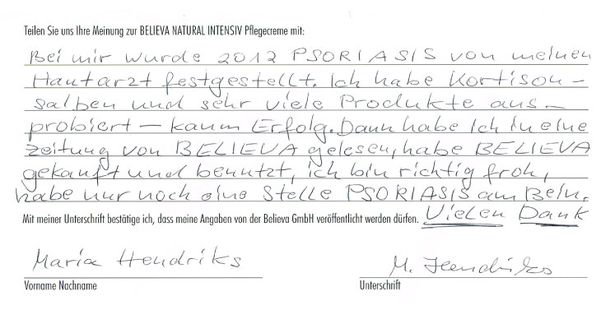 Teilen Sie uns Ihre Meinung zur BELIEVA NATURAL INTENSIV Pflegecreme mit:
Bei mir wurde 2012 PSORIASIS von meinen
Hautarzt festgestellt. Ich habe Kortison-
salben und sehr viele Produkte aus-
probiert - kaum Erfolg. Dann habe ich in eine
Zeitung von BELIEVA gelesen, habe BELIEVA
gekauft und benutzt, ich bin richtig froh,
habe nur noch eine Stelle PSORIASIS am Bein.
Mit meiner Unterschrift bestätige ich, dass meine Angaben von der Believa GmbH veröffentlicht werden dürfen. Vielen Dank
Maria Hendriks M. Hendriks
Vorname Nachname Unterschrift